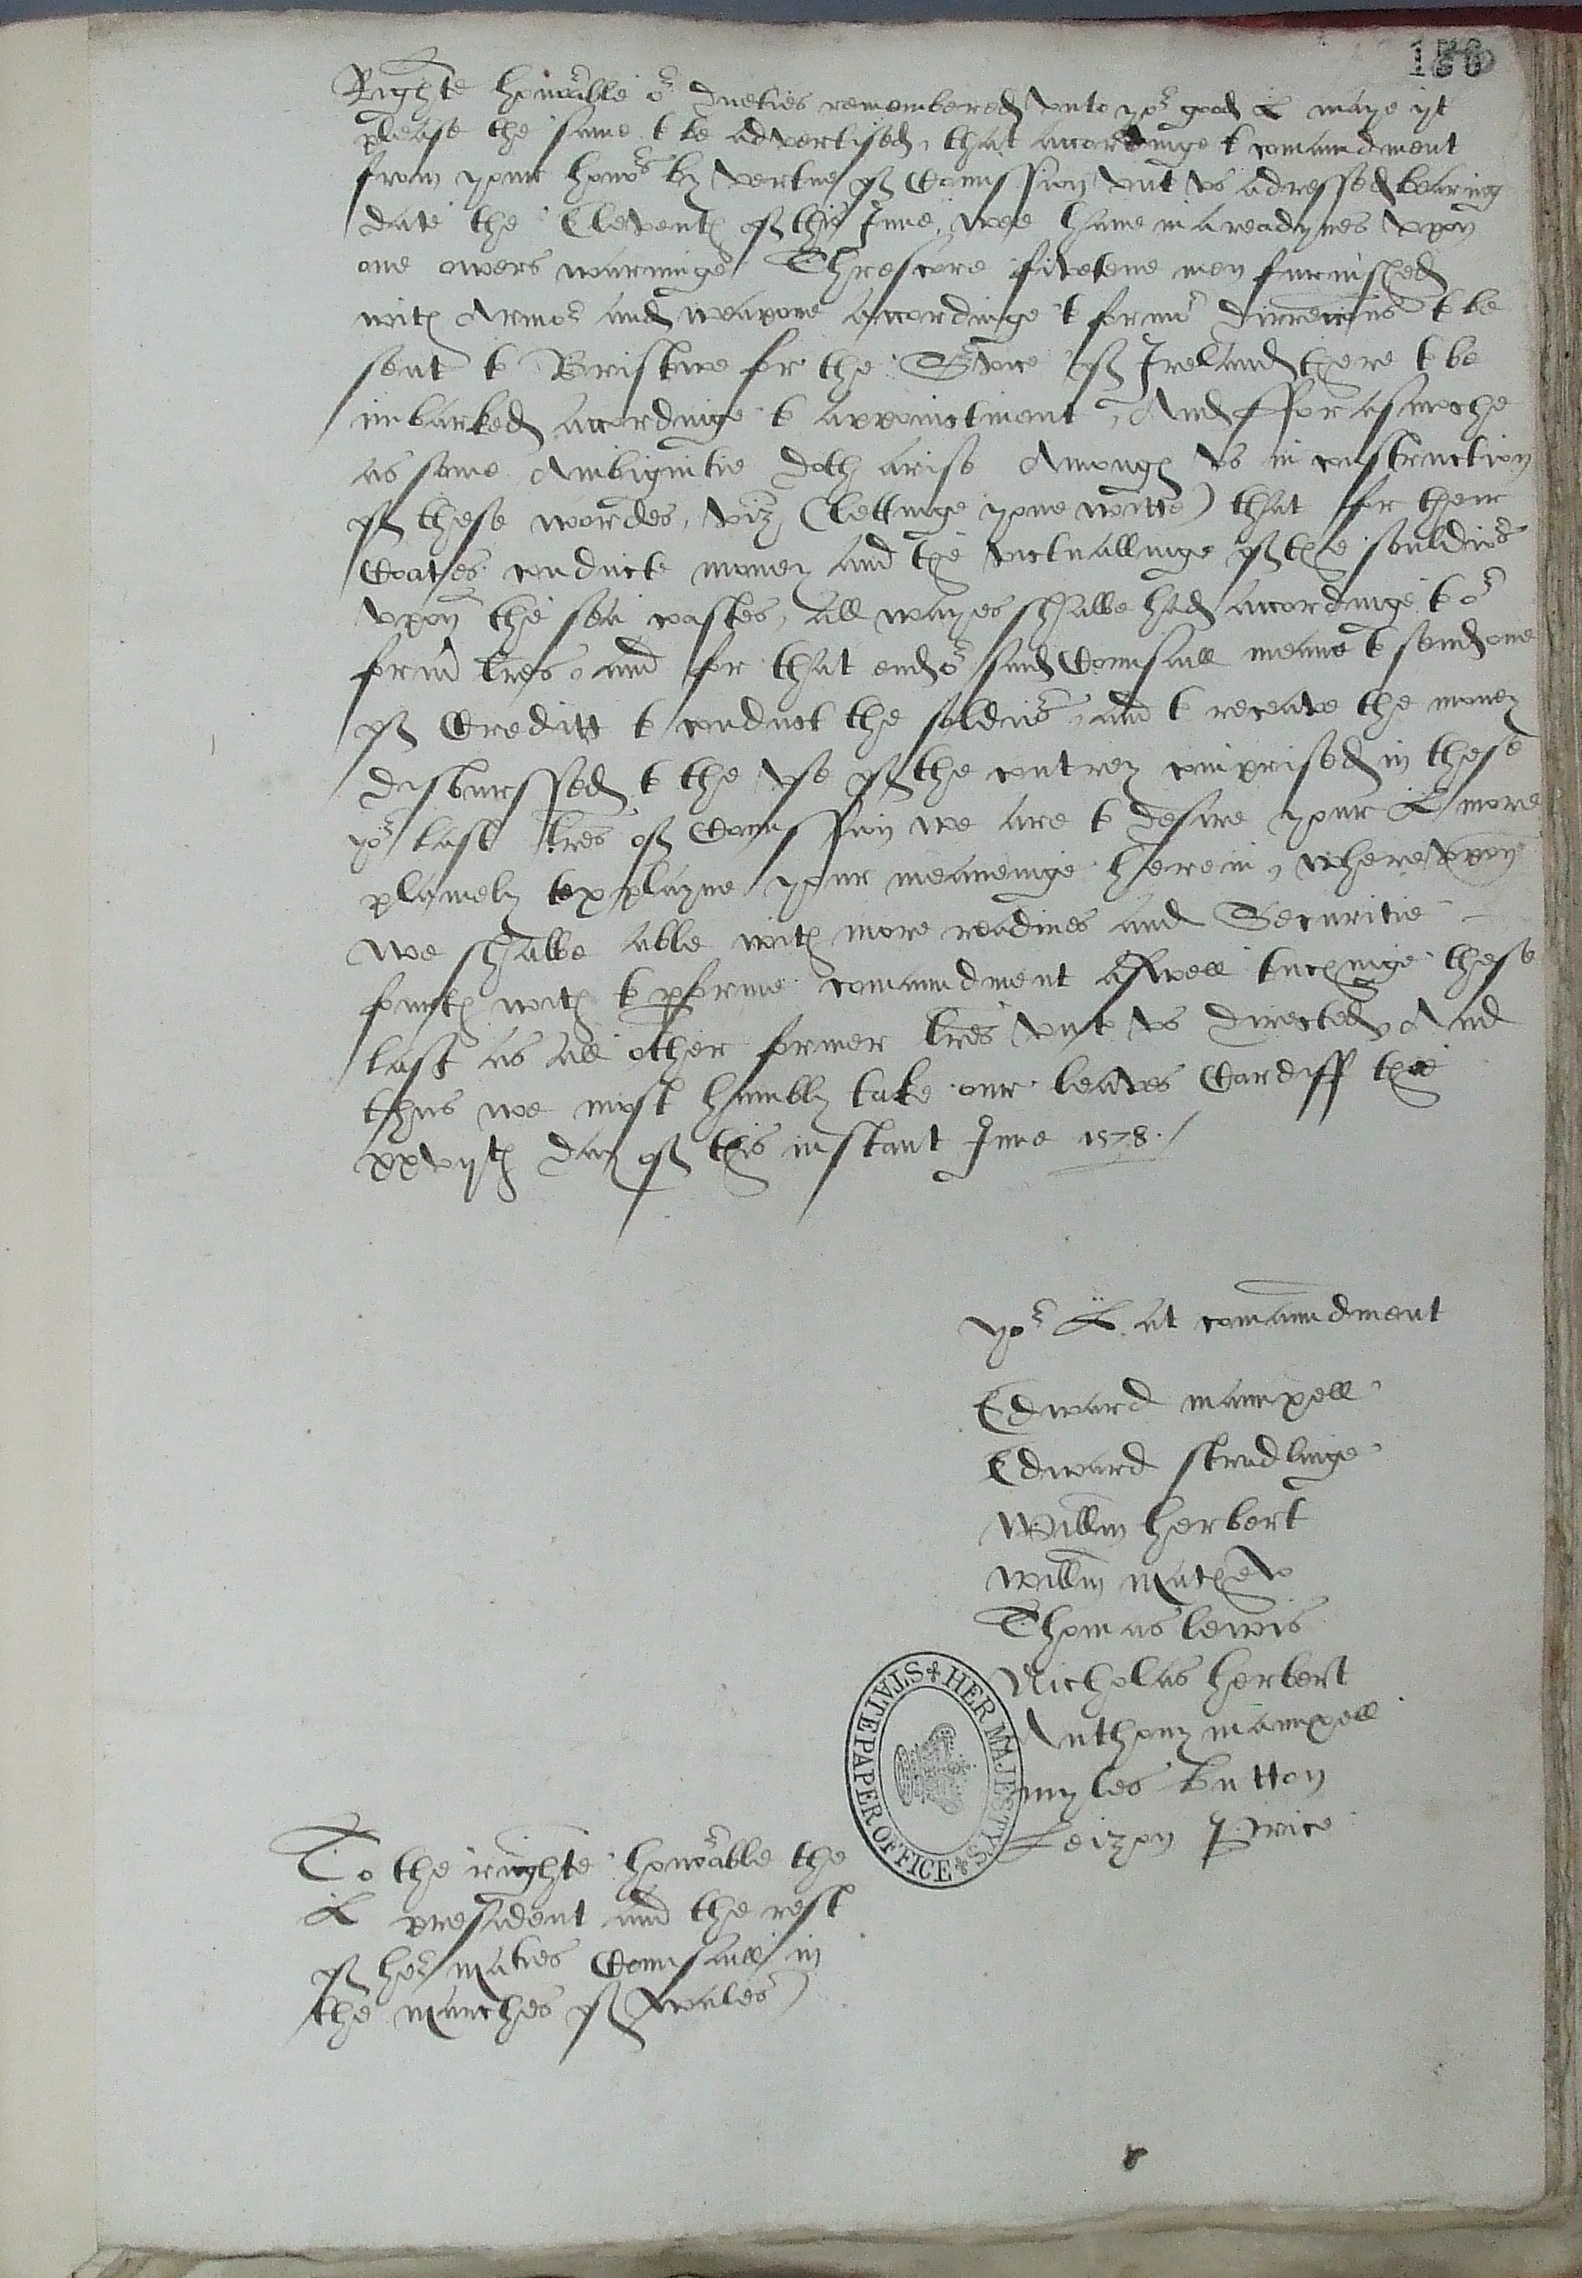 156
Righte honorable or dueties remembered vnto yor good L maye yt
please the same to be advertised, that accordinge to comaundment
from your honors by vertue of Comission vnto vs adressed bearing
date the Eleventh of this June, wee haue in a readynes vpon
one owers warninge Threscore fiveteene men furnished
with Armor and weapone accordinge to former direccions to be
sent to Bristowe for the Service of Ireland there to be
imbarked accordinge to appointment, And fforasmoche
as some Ambiguitie doth arise Amongh vs in construction
of these wordes, viz, (lettinge youe witte) that for their
Coates conducte money and the victuallinge of the souldiors
vpon the sea costes, all wayes shalbe had accordinge to or
former lres, and for that end or said Counsaill meane to send one
of Creditt to conduct the soldiors, and to receave the money
disburssed to the vse of the contrey comprised in these
yor last lres of Comission we are to desire your L more
plainely texplayne your meaneinge herein, wherevpon
we shalbe able with more readines and Securitie
furth with to pforme comaundment aswell tuchinge these
last as all other former lres vnto vs directed, And
thus we most humbly take our leaves Cardiff the
xxvijth day of this instant June 1578./
yor L at comaundment
Edward mannxell
Edward stradlinge
Willm herbert
Willm Mathew
Thomas lewis
Nicholas herbert
Anthony mannxell
myles button
Leizon Price
HER MAJESTY'S STATE PAPER OFFICE
To the righte honorable the
L president and the rest
of her maties Counsaill in
the marches of wales)